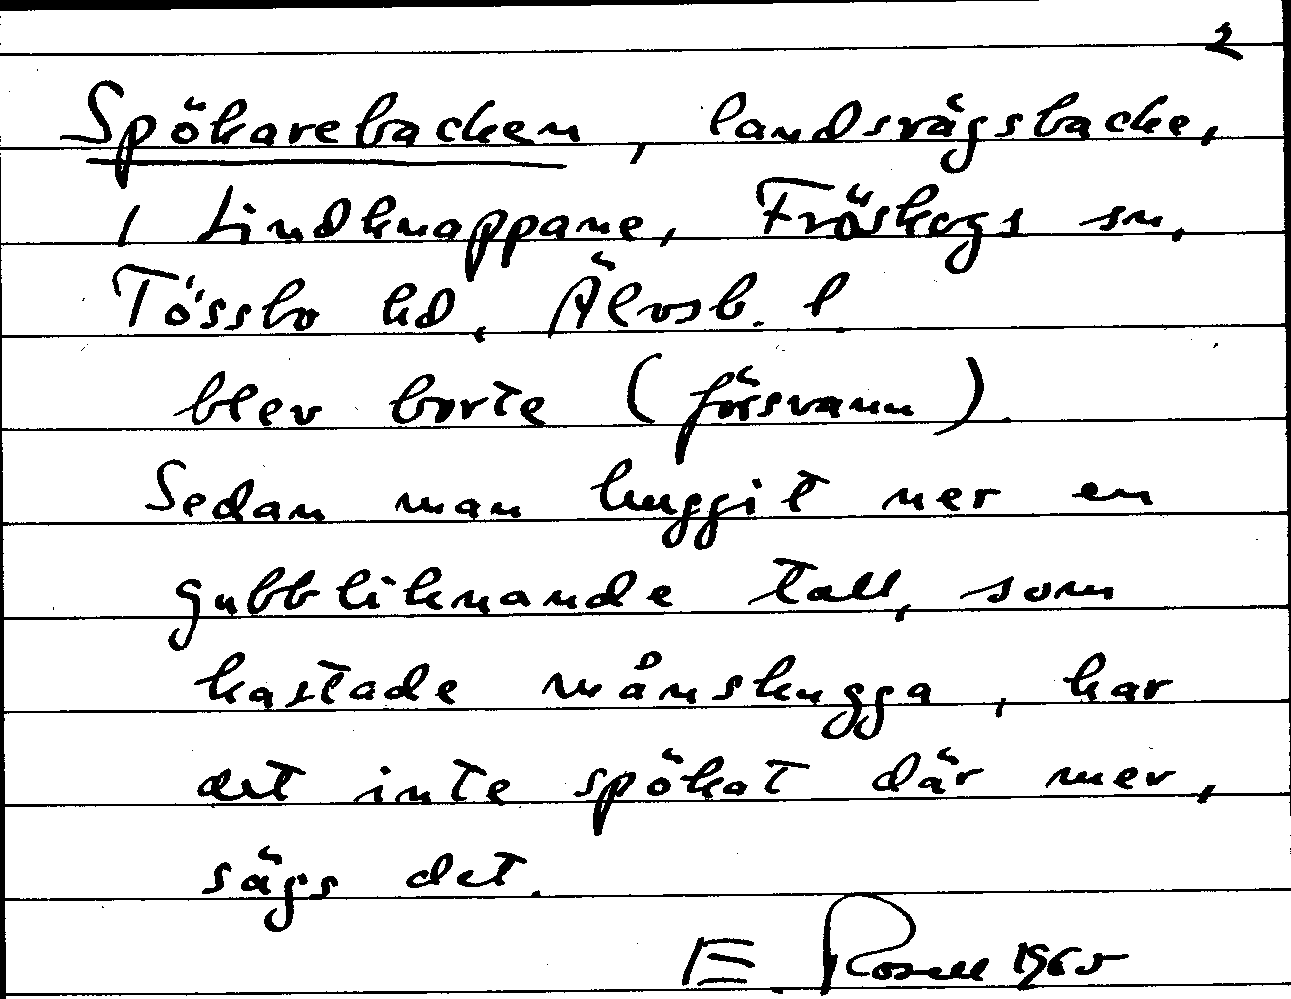 2
Spökarebacken, landsvägsbacke,
i Lindknappane, Fröskogs sn,
Tössbo hd. Älvsb. l.
blev borte (försvann).
Sedan man huggit ner en
gubbliknande tall, som
kastade månskugga, har
det inte spökat där mer,
sägs det.
E. Rosell 1965